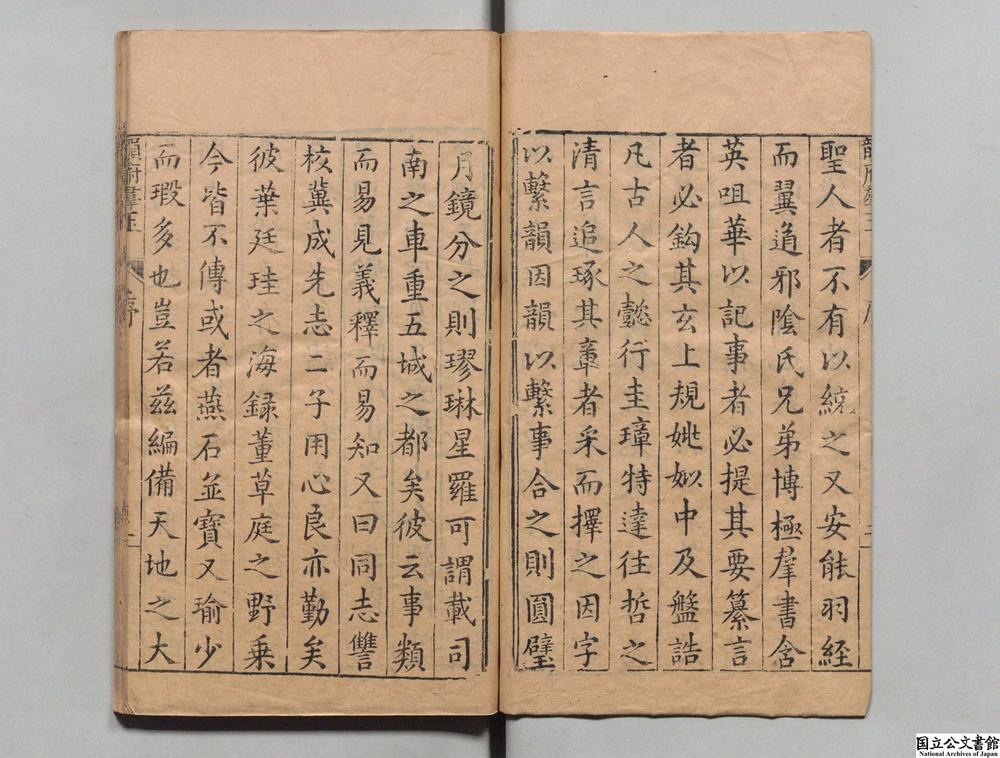 聖人者不有以統之又安能羽經
而翼道邪陰氏兄弟博極羣書含
英咀華以記事者必提其要纂言
者必鈎其玄上規姚姒中及盤誥
凡古人之懿行圭璋特達往哲之
清言追琢其章者采而擇之因字
以繫韻因韻以繫事合之則圓璧
月鏡分之則璆琳星羅可謂載司
南之車重五城之都矣彼云事類
而易見義釋而易知又曰同志讐
核冀成先志二子用心良亦勤矣
彼葉廷珪之海録董草庭之野乗
今皆不傳或者燕石並寶又瑜少
而瑕多也豈若茲編備天地之大
韻府羣玉
序
二
国立公文書館
National Archives of Japan